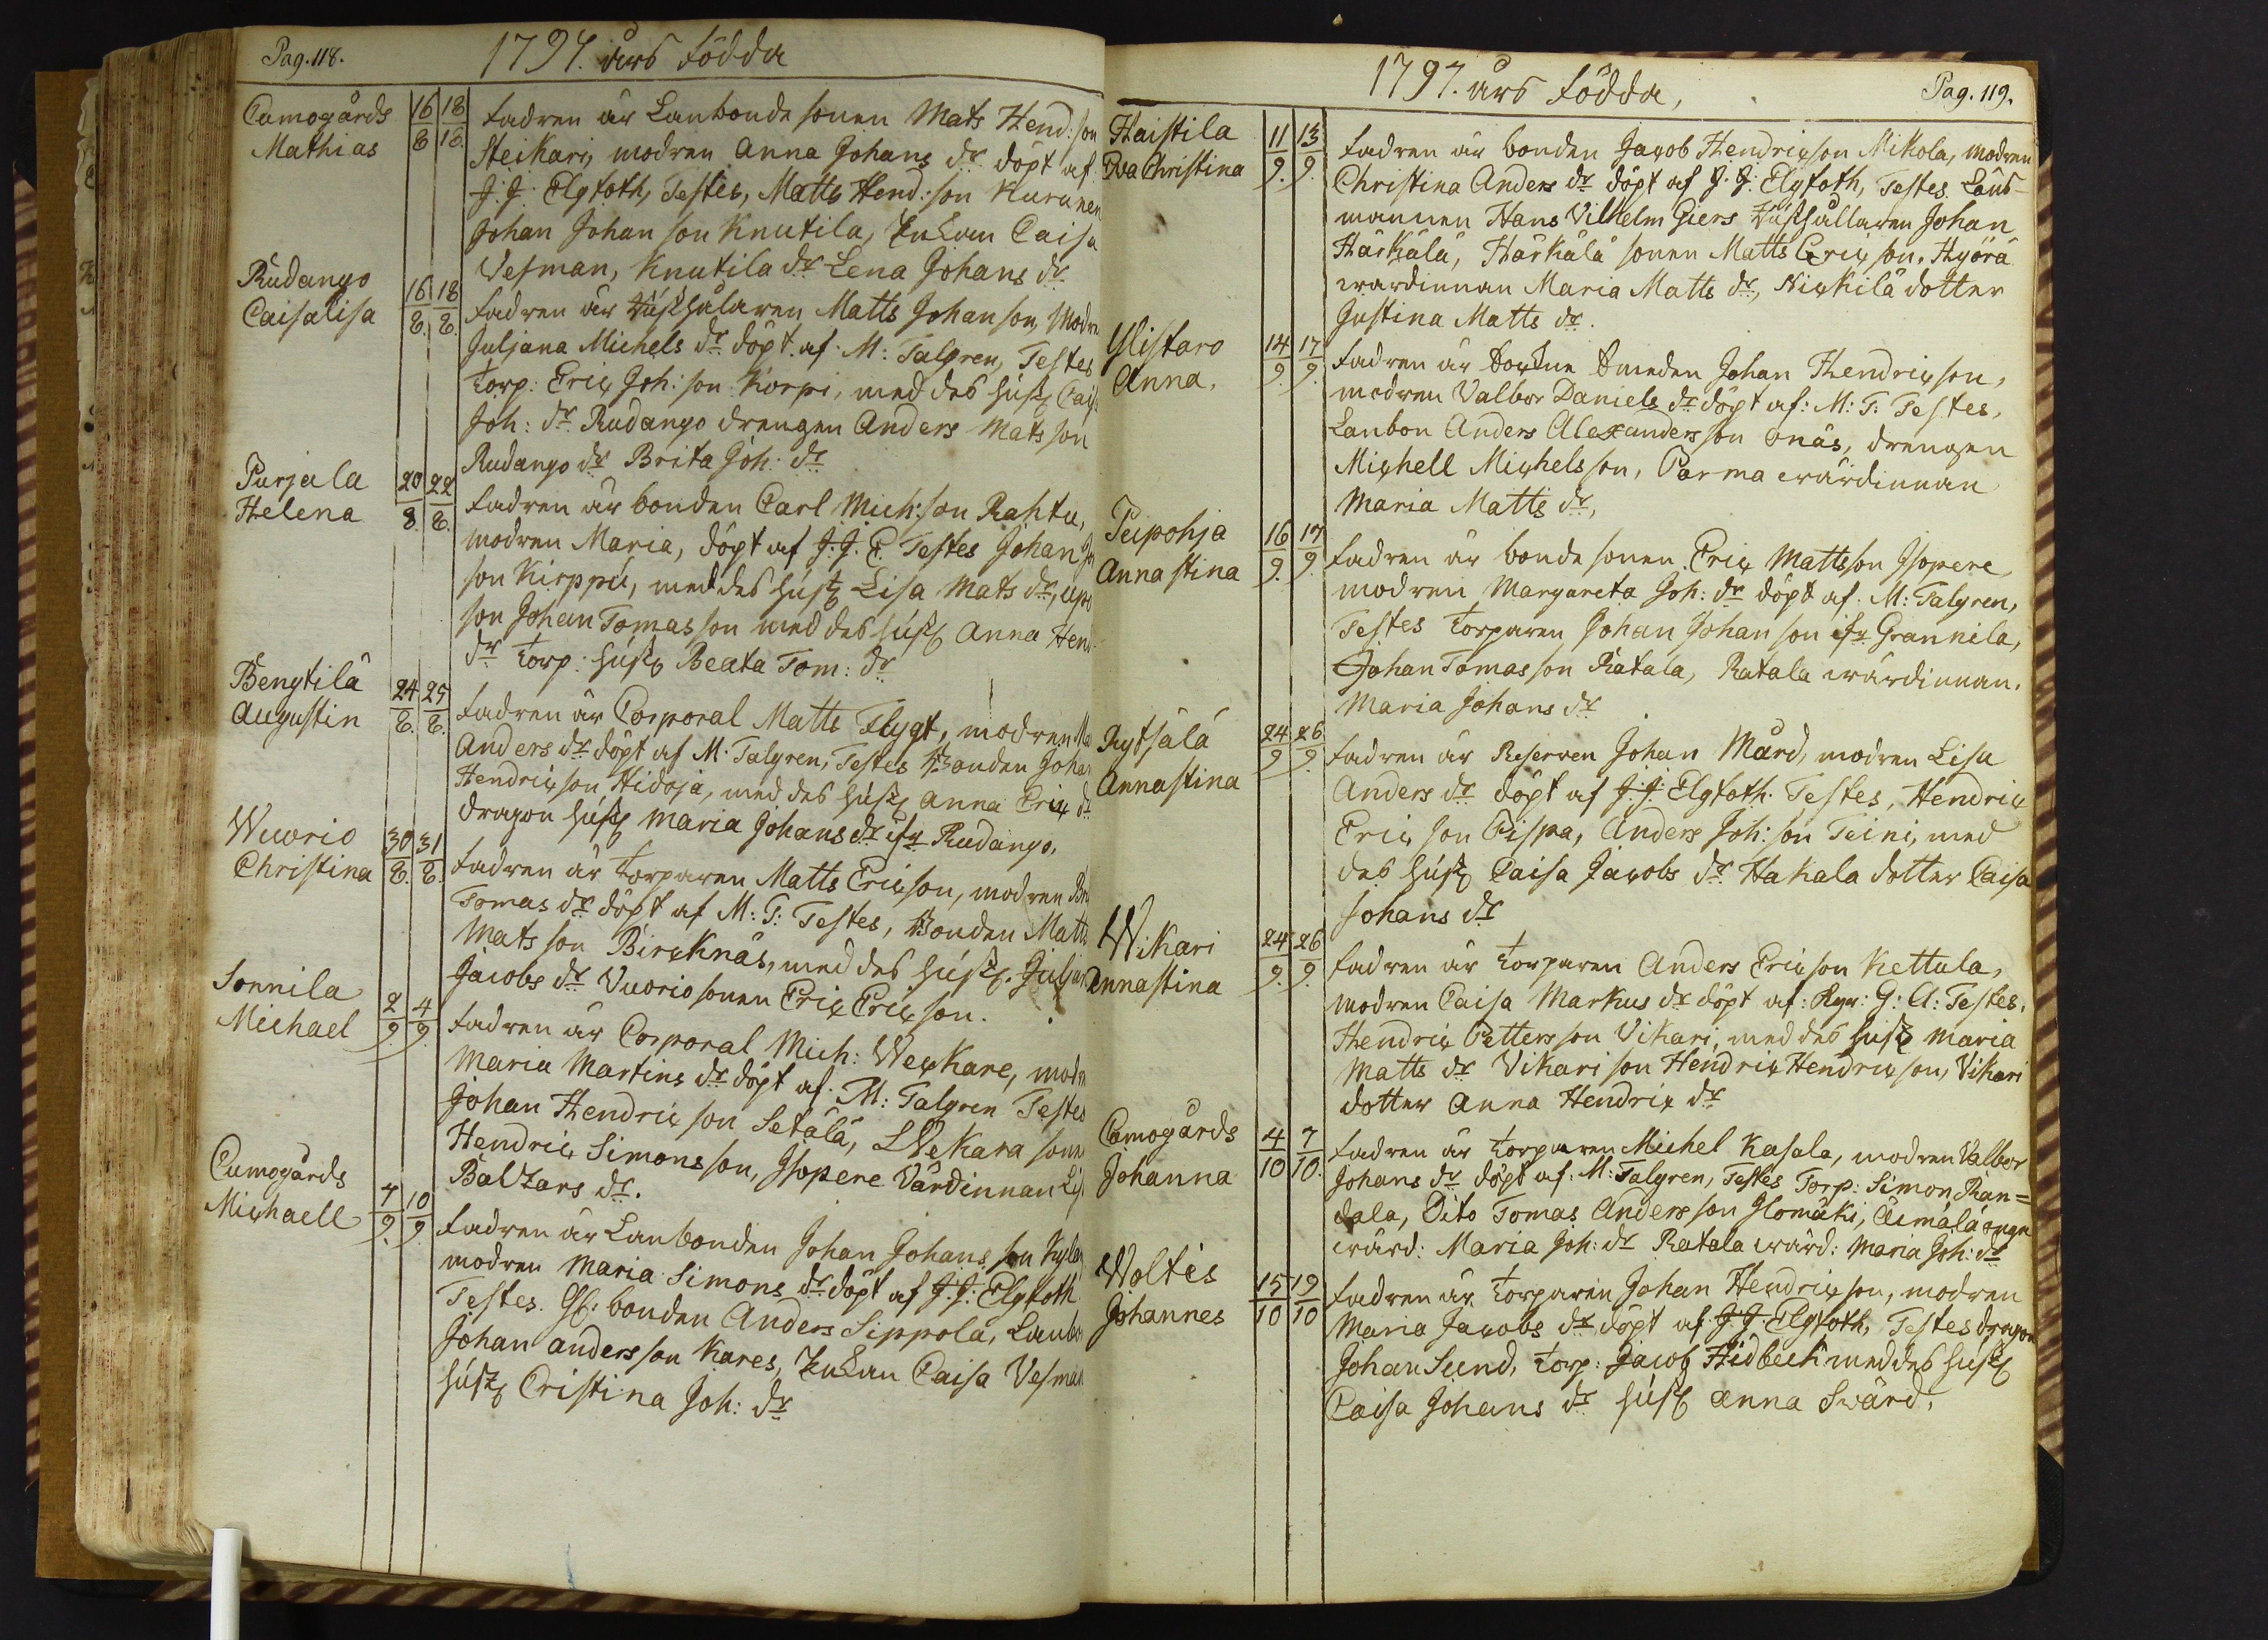 Pag. 118.
1797. års födda
Cumogårds 16/8 18/18 fadren är Lanbonde sonen Mats Hend: son
Mathias Steikari, modren Anna Johans dr döpt af
J. J. Elgfoth, Testes, Matts Hend: son Kurunen
Johan Johan son Knutila, Caisa
Vesman, Knutila dr Lena Johans dr
Rudango 16/8 18/8 fadren är Matts Johan son, Modre
Caisalisa Juljana Michels dr döpt af M: Talgren, Testes
torp: Eric Joh: son Korpi, med des hust
Joh: dr Rudango drengen Anders Mats son
Rudango dr Brita Joh: dr
Purjala 20/8 22/8 fadren är bonden Carl Mich: son Rahtu,
Helena modren Maria, döpt af J. J. E. Testes Johan
son Kirppú, med des hust Lisa Mats dr,
son Johan Tomas son med des hust Anna Hend
dr torp: hust Beata Tom: dr
Bengtilä 24/8 25/8 fadren är Corporal Matts Flygt, modren
Augustin Anders dr döpt af M: Talgren, Testes Bonden Johan
Hendric son Hidoja, med des hust Anna Eric dr
dragon hust Maria Johans dr ifr Rudango.
Wuorio 30/8 31/8 fadren är torparen Matts Ericson, modren
Christina Tomas dr döpt af M: T: Testes, Bonden Matts
Mats son Bircknäs, med des hust. Juljan
Jacobs dr Vuorio sonen Eric Eric son.
Sonnila 2/9 4/9 fadren är Corporal Mich: Weckare, modr
Michael Maria Martins dr döpt af M: Talgren Testes
Johan Hendric son Setälä, Wekara sonn
Hendric Simons son, Isopere Värdinnan
Baltzars dr.
Cumogårds 7/9 10/9 fadren är Lanbonden Johan Johans son
Michaell modren Maria Simons dr döpt af J. J: Elgfoth
Testes. bonden Anders Sippola, Lanbo
Johan anders son Kares, Caisa Vesman
hust Cristina Joh: dr
1797. års födda,
Pag. 119.
Haistila 11/9 13/9 fadren är bonden Jacob Hendricson Mikola, modren
Eva Christina Christina Anders dr döpt af J. J: Elgfoth, Testes Läns-
mannen Hans Vilhelm Giers Johan
Härkälä, Härkälä sonen Matts Eric son. Hyörä
wärdinnan Maria Matts dr, Nickilä dotter
Justina Matts dr.
Ylistaro 14/9 17/9 fadren är Sockne Smeden Johan Hendricson,
Anna. modren Valbor Daniels dr döpt af: M: T: Testes.
Lanbon Anders Alexanders son Onäs, drengen
Michell Michels son, Parma wärdinnan
Maria Matts dr,
Peipohja 16/9 17/9 fadren är bonde sonen Eric Mattsson Isopere
Annastina modren Margareta Joh: dr döpt af M: Talgren,
Testes torparen Johan Johan son ifr Grannila,
Johan Tomas son Ratala, Ratala wärdinnan.
Maria Johans dr
Rytsälä 24/9 26/9 fadren är Reserven Johan Mård, modren Lisa
Annastina Anders dr döpt af J. J. Elgfoth. Testes, Hendric
Eric son Pispa, Anders Joh: son Teini, med
des hust Caisa Jacobs dr Hakala dotter Caisa
Johans dr
Wikari 24/9 26/9 fadren är torparen Anders Ericson Kettula,
Annastina modren Caisa Markus dr döpt af: G: A: Testes.
Hendric Petters son Vikari, med des hust Maria
Matts dr Vikari son Hendric Hendricson, Vikari
dotter Anna Hendric dr
Cumogårds 4/10 7/10 fadren är torparen Michel Kasala, modren Valbor
Johanna Johans dr döpt af: M: Talgren, Testes Torp: Simon Ran=
dala, Dito Tomas Anders son Ilomäki,
wärd: Maria Joh: dr Ratala wärd: Maria Joh: dr
Woltis 15/10 19/10 fadren är torparen Johan Hendricson, modren
Johannes Maria Jacobs dr döpt af J. J. Elgfoth, Testes dragon
Johan Sund, torp: Jacob Hidbeck med des hust
Caisa Johans dr hust Anna Swärd.